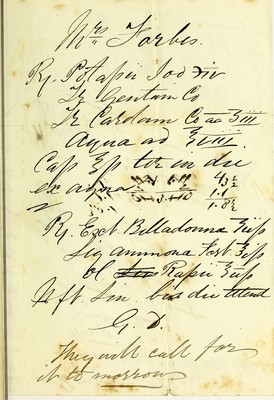 Mrs Forbes.
℞. Potapii Iod ʒiv
Tr Gentian Co
Tr Cardam Co aa ℥iii
Aqua ad ℥viii.
Cap ℥p ter in die
ex aqua
4/3½
1.8½
℞. Ext Belladonna ℥ifs
Liq ammona Fort ℥ifs
Ol Rapii ℥ifs
ft Lin bis die utend
G. D.
They will call for
it to morrow